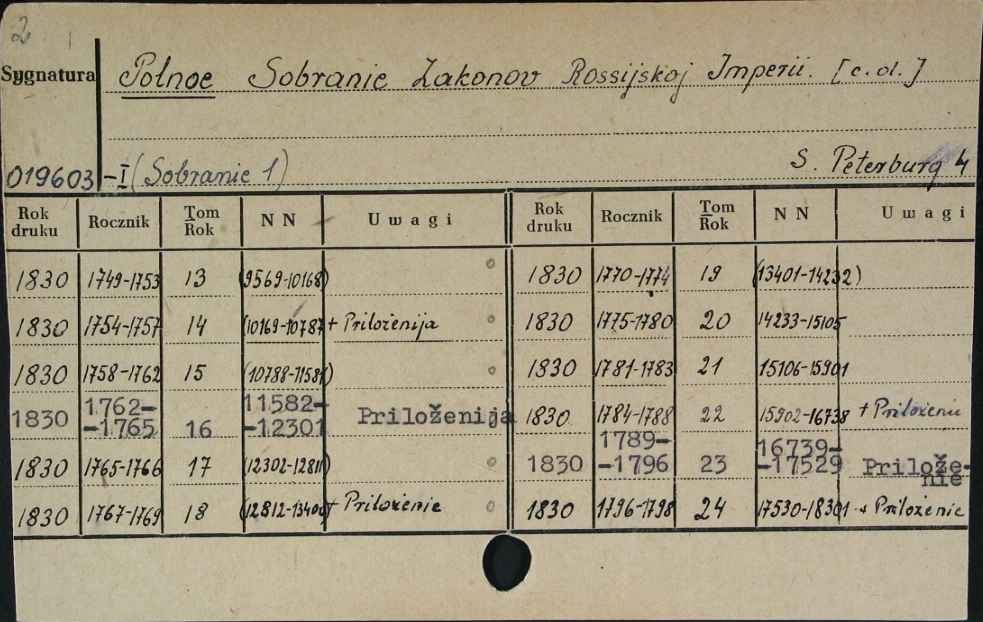 2
Sygnatura Połnoe Sobranie Zakonov Rossijskoj Imperii. [c.d.]
019603 -I (Sobranie 1) S. Peterburg 4
Rok druku Rocznik Tom Rok NN Uwagi Rok druku Rocznik Tom Rok NN Uwagi
1830 1749-1753 13 (9569-10168) 1830 1770-1774 19 (13401-14232)
1830 1754-1757 14 (10169-10787 + Priloženija 1830 1775-1780 20 14233-15105
1830 1758-1762 15 (10788-11581) 1830 1781-1783 21 15106-15901
1830 1762--1765 16 11582--12301 Priloženija 1830 1784-1788 22 15902-16738 + Priloženie
1830 1765-1766 17 (12302-12811) 1830 1789--1796 23 16739--17529 Prilože-nie
1830 1767-1769 18 (12812-13400 + Priloženie 1830 1796-1798 24 17530-18301 + Priloženie